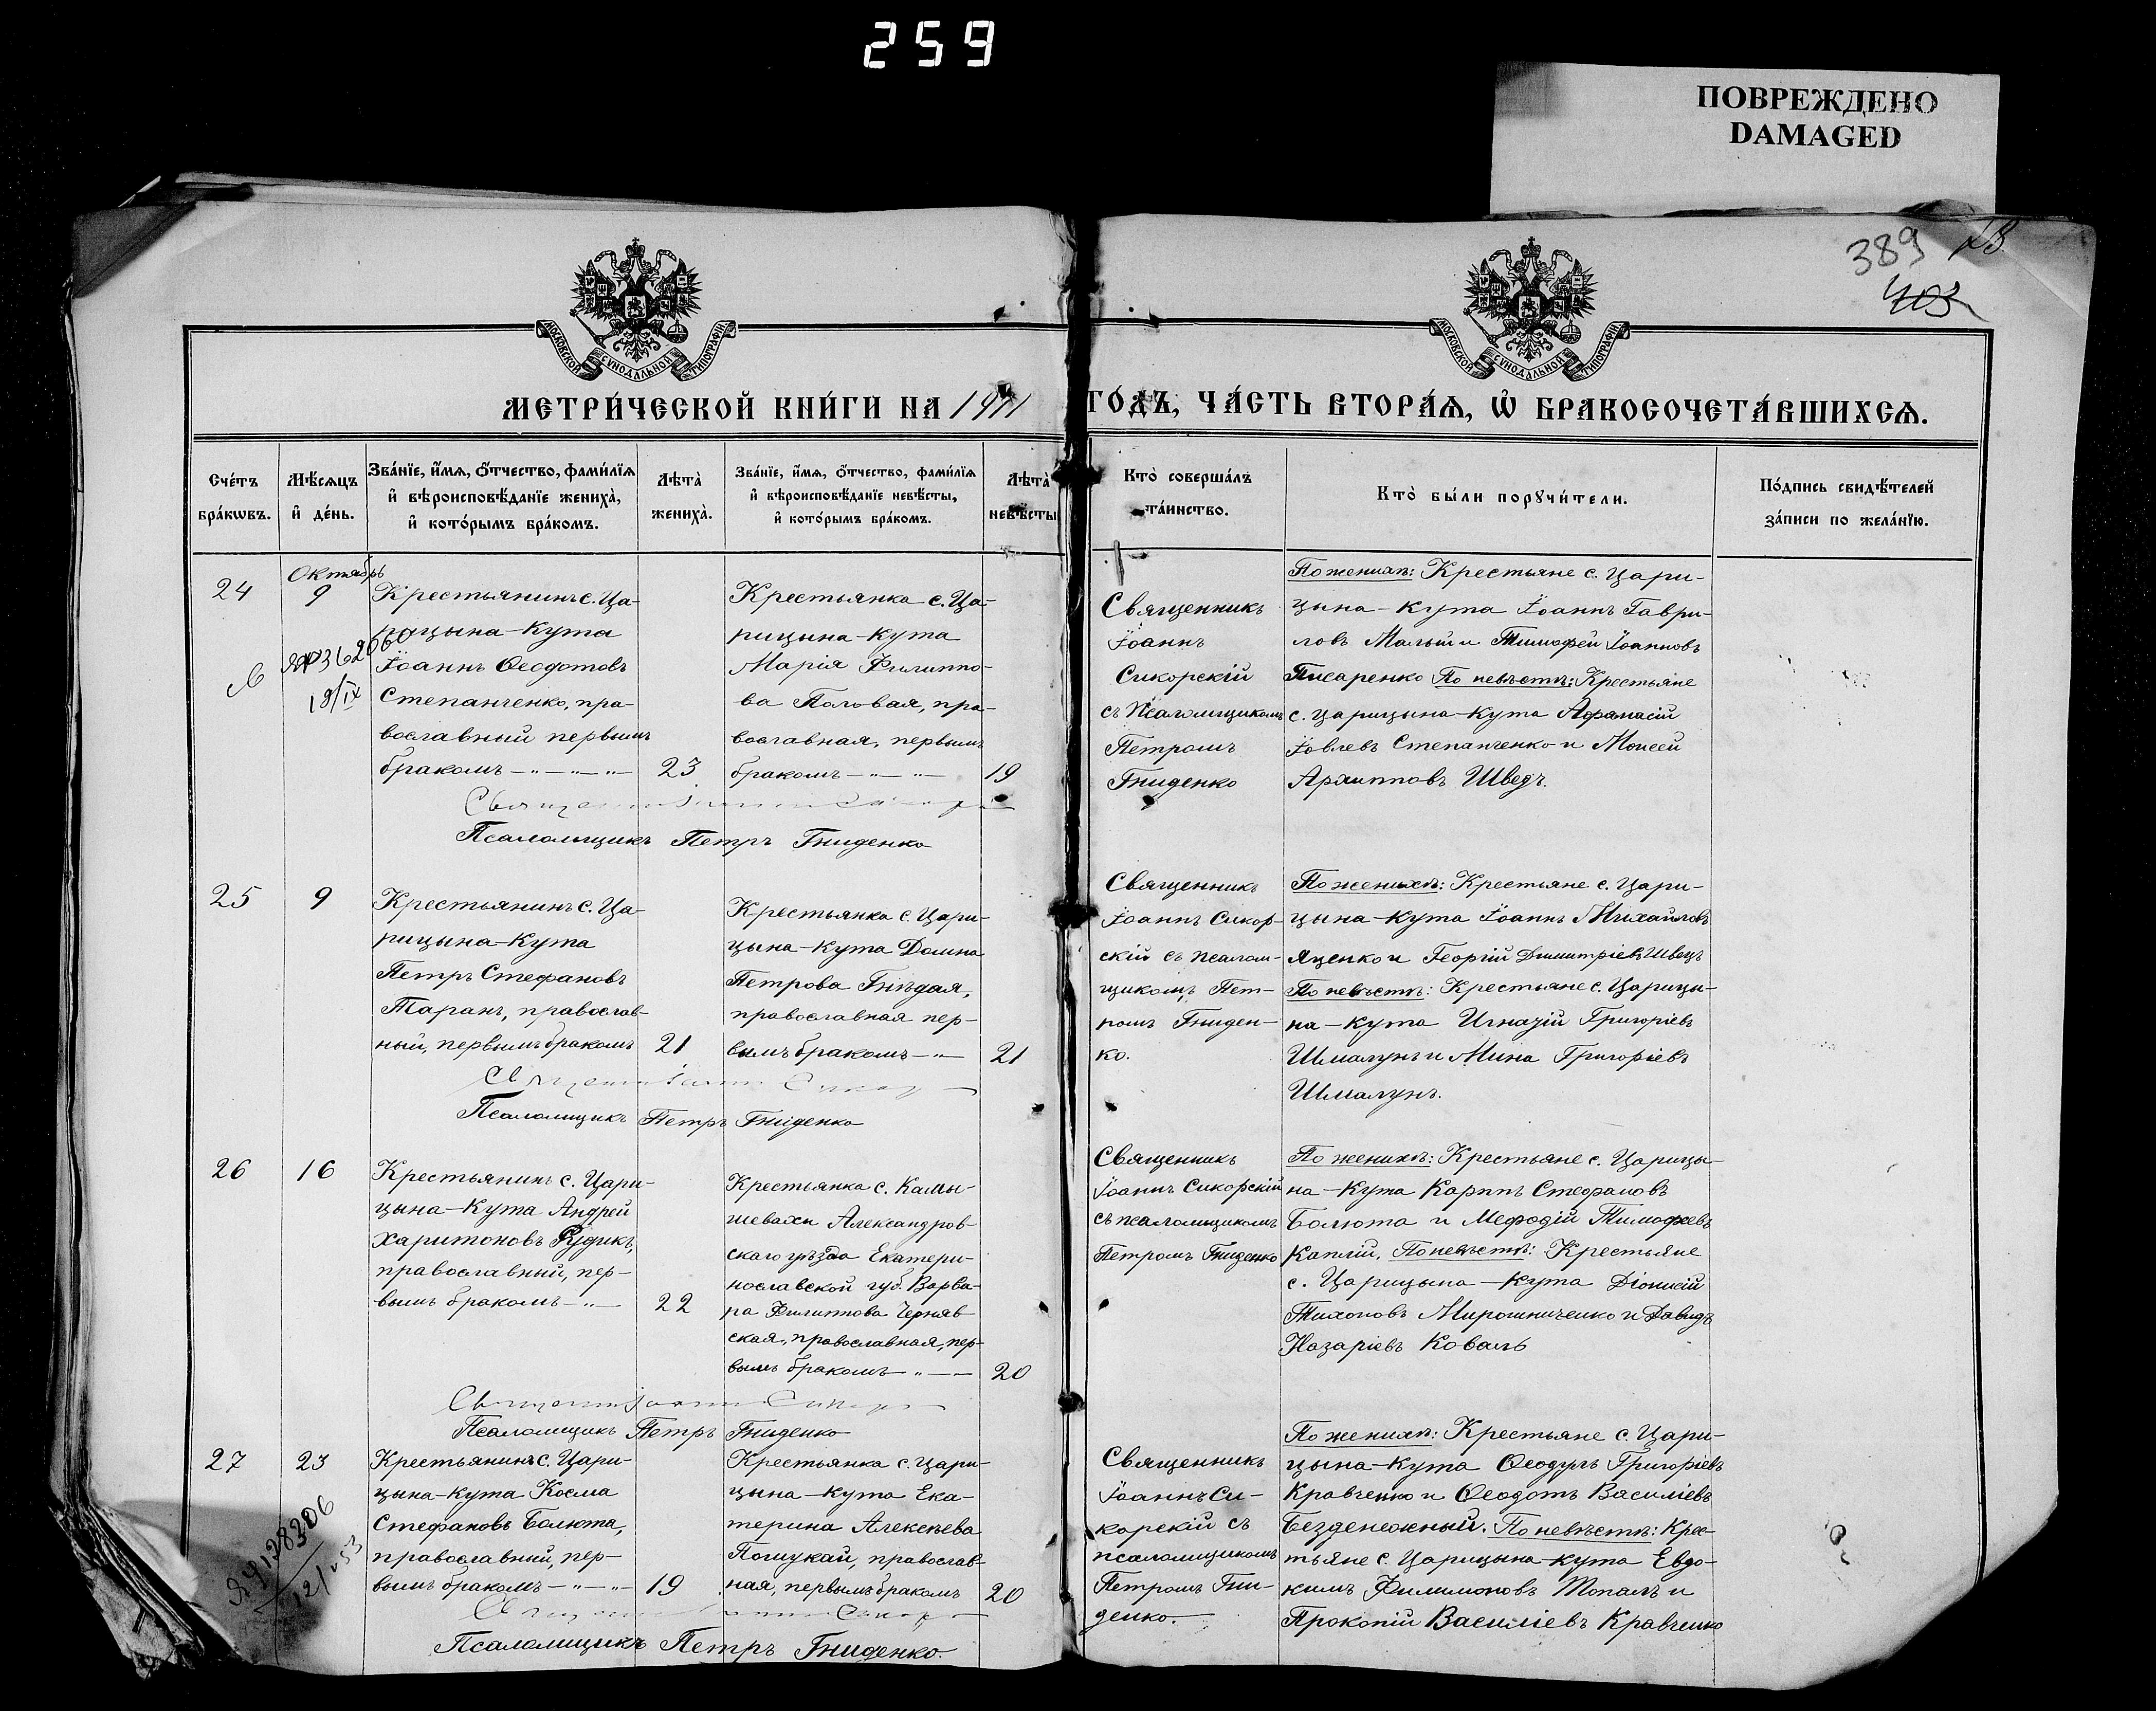 259
ПОВРЕЖДЕНО
DAMAGED
389
403
МОСКОВСКОЙ СѴНОДАЛЬНОЙ ТИПОГРАФІИ
МОСКОВСКОЙ СѴНОДАЛЬНОЙ ТИПОГРАФІИ
МЕТРИ́ЧЕСКОЙ КНИ́ГИ НА 1911 ГО́ДЪ, ЧА́СТЬ ВТОРА́Ѧ, Ѡ҆ БРАКОСОЧЕТА́ВШИХСѦ.
Сче́тъ
бра́кѡвъ.
Мѣ́сѧцъ
и҆ де́нь.
Зва́нїе, и҆́мѧ, ѻ҆́тчество, фами́лїѧ
и҆ вѣроисповѣ́данїе жениха̀,
и҆ кото́рымъ бра́комъ.
Лѣта̀
жениха̀.
Зва́нїе, и҆́мѧ, ѻ҆́тчество, фами́лїѧ
и҆ вѣроисповѣ́данїе невѣ́сты,
и҆ кото́рымъ бра́комъ.
Лѣта̀
невѣ́сты
Кто̀ соверша́лъ
та́инство.
Кто̀ бы́ли порꙋчи́тели.
По́дпись свидѣ́телей
за́писи по жела́нїю.
24
Октябрь
9
18/IX
Крестьянинъ с. Ца-
рицына-Кута
Іоаннъ Ѳеодотовъ
Степанченко, пра-
вославный первымъ
бракомъ — „ — „ — 23
Крестьянка с. Ца-
рицына-Кута
Марія Филиппо-
ва Половая, пра-
вославная, первымъ
бракомъ — „ — 19
Священникъ
Іоаннъ
Сикорскій
съ псаломщикомъ
Петромъ
Гниденко
По женихѣ: Крестьяне с. Цари-
цына-Кута Іоаннъ Гаври-
ловъ Малый и Тимофей Іоанновъ
Писаренко По невѣстѣ: Крестьяне
с. Царицына-Кута Афанасій
Іовлевъ Степанченко и Моисей
Архипповъ Шведъ.
Псаломщикъ Петръ Гниденко
25
9
Крестьянинъ с. Ца-
рицына-Кута
Петръ Стефановъ
Таранъ, православ-
ный, первымъ бракомъ 21
Крестьянка с. Цари-
цына-Кута Домна
Петрова Гнѣдая,
православная пер-
вымъ бракомъ — „ — 21
Священникъ
Іоаннъ Сикор-
скій съ псалом-
щикомъ Пет-
ромъ Гниден-
ко.
По женихѣ: Крестьяне с. Цари-
цына-Кута Іоаннъ Михайловъ
Яценко и Георгій Димитріевъ Швецъ
По невѣстѣ: Крестьяне с. Царицы-
на-Кута Игнатій Григоріевъ
Шмалунъ и Мина Григоріевъ
Шмалунъ.
Псаломщикъ Петръ Гниденко
26
16
Крестьянинъ с. Цари-
цына-Кута Андрей
Харитоновъ Рудикъ,
православный, пер-
вымъ бракомъ — „ — 22
Крестьянка с. Камы-
шевахи Александров-
скаго уѣзда Екатери-
нославской губ. Варва-
ра Филиппова Черняв-
ская, православная, пер-
вымъ бракомъ „ — 20
Священникъ
Іоаннъ Сикорскій
съ псаломщикомъ
Петромъ Гниденко
По женихѣ: Крестьяне с. Царицы-
на-Кута Карпъ Стефановъ
Балюта и Мефодій Тимофеевъ
Каплій. По невѣстѣ: Крестьяне
с. Царицына-Кута Діонисій
Тихоновъ Мирошниченко и Давидъ
Назаріевъ Коваль
Псаломщикъ Петръ Гниденко
27
23
Крестьянинъ с. Цари-
цына-Кута Косма
Стефановъ Балюта,
православный, пер-
вымъ бракомъ — „ — „ — 19
Крестьянка с. Цари-
цына-Кута Ека-
терина Алексѣева
Пошукай, православ-
ная, первымъ бракомъ 20
Священникъ
Іоаннъ Си-
корскій съ
псаломщикомъ
Петромъ Гни-
денко.
По женихѣ: Крестьяне с. Цари-
цына-Кута Ѳеодулъ Григоріевъ
Кравченко и Ѳеодотъ Василіевъ
Безденежный. По невѣстѣ: Крес-
тьяне с. Царицына-Кута Евдо-
кимъ Филимоновъ Топалъ и
Прокопій Василіевъ Кравченко
Псаломщикъ Петръ Гниденко.